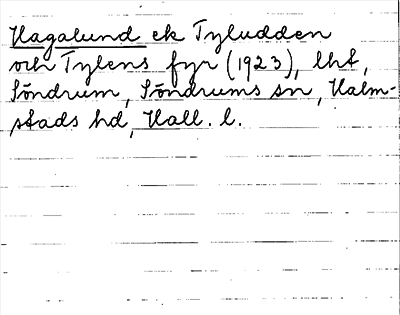 Hagalund ek Tyludden
och Tylens fyr (1923), lht,
Söndrum, Söndrums sn, Halm-
stads hd, Hall. l.